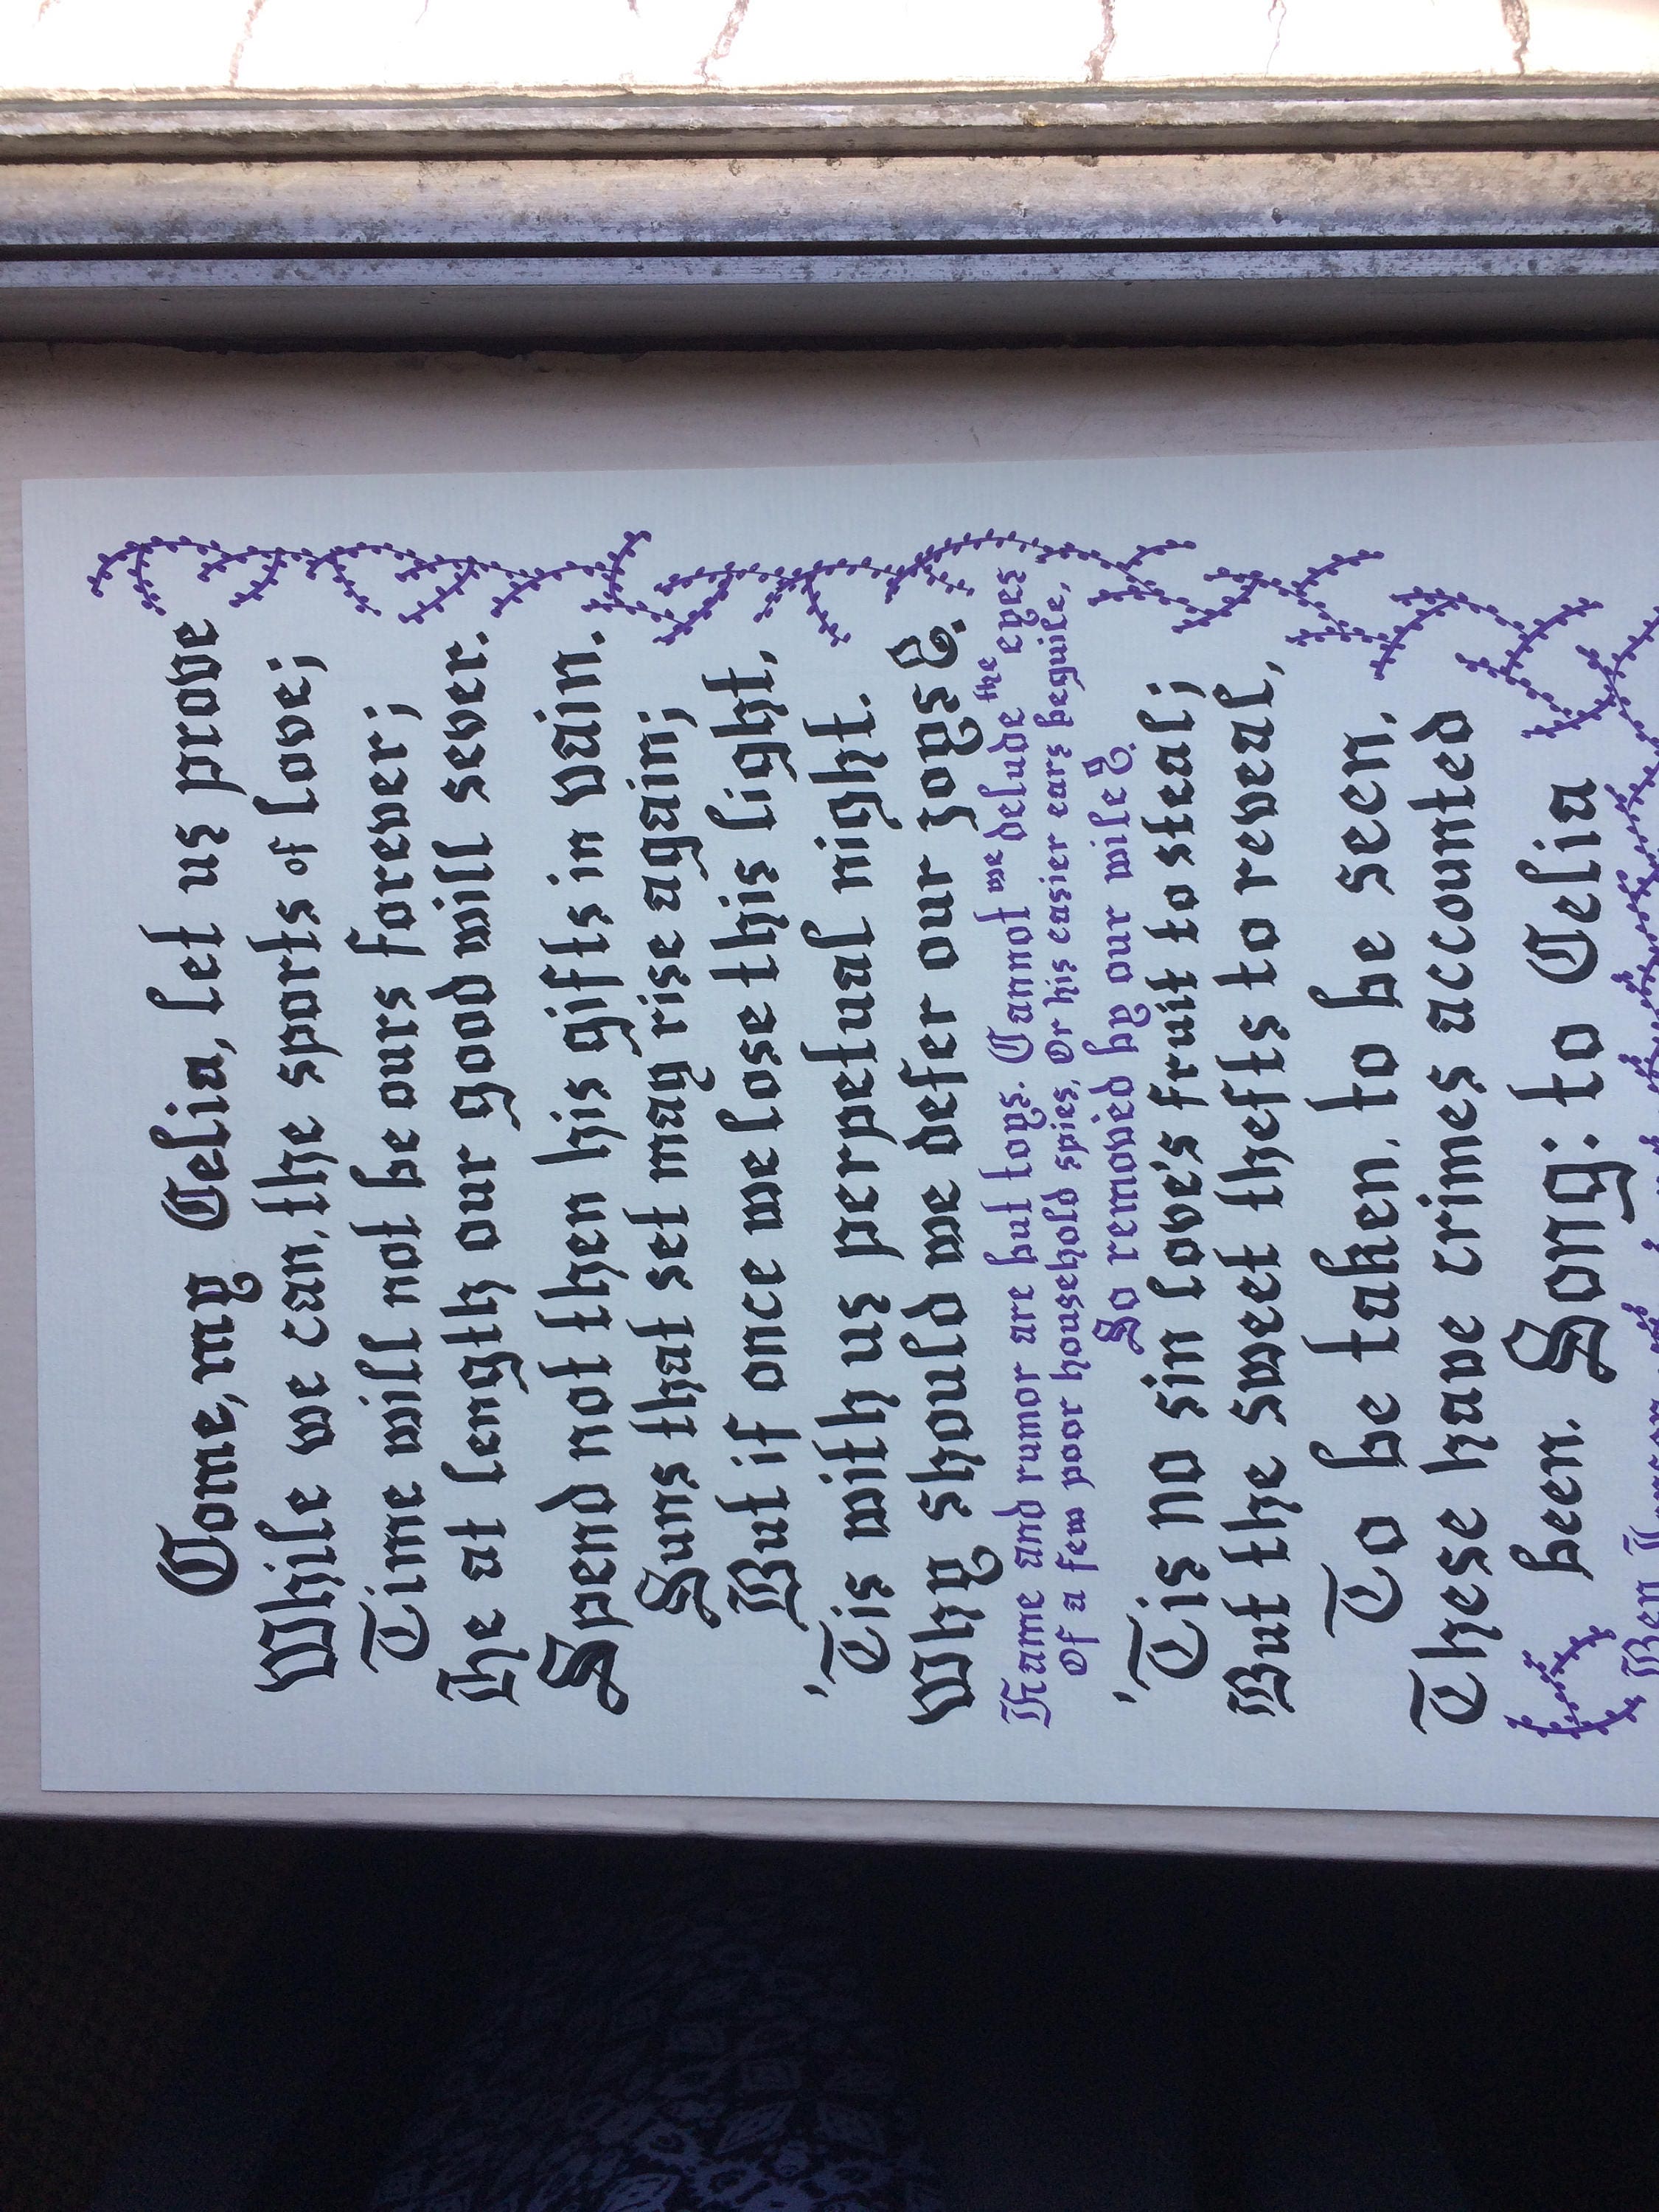 Come, my Celia, let us prove
While we can, the sports of love;
Time will not be ours forever;
He at length our good will sever.
Spend not then his gifts in vain.
Suns that set may rise again;
But if once we lose this light,
'Tis with us perpetual night.
Why should we defer our joys?
Fame and rumor are but toys. Cannot we delude the eyes
Of a few poor household spies, Or his easier ears beguile,
So removed by our wile?
'Tis no sin love's fruit to steal;
But the sweet thefts to reveal,
To be taken, to be seen,
These have crimes accounted
been. Song: to Celia
Ben